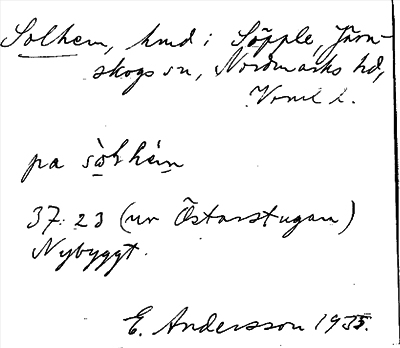 Solhem, hmd i Söpple, Järn-
skogs sn, Nordmarks hd,
Vrml l.
pa sòlhèm
37:23 (ur Östarstugan)
Nybyggt.
E. Andersson 1935.